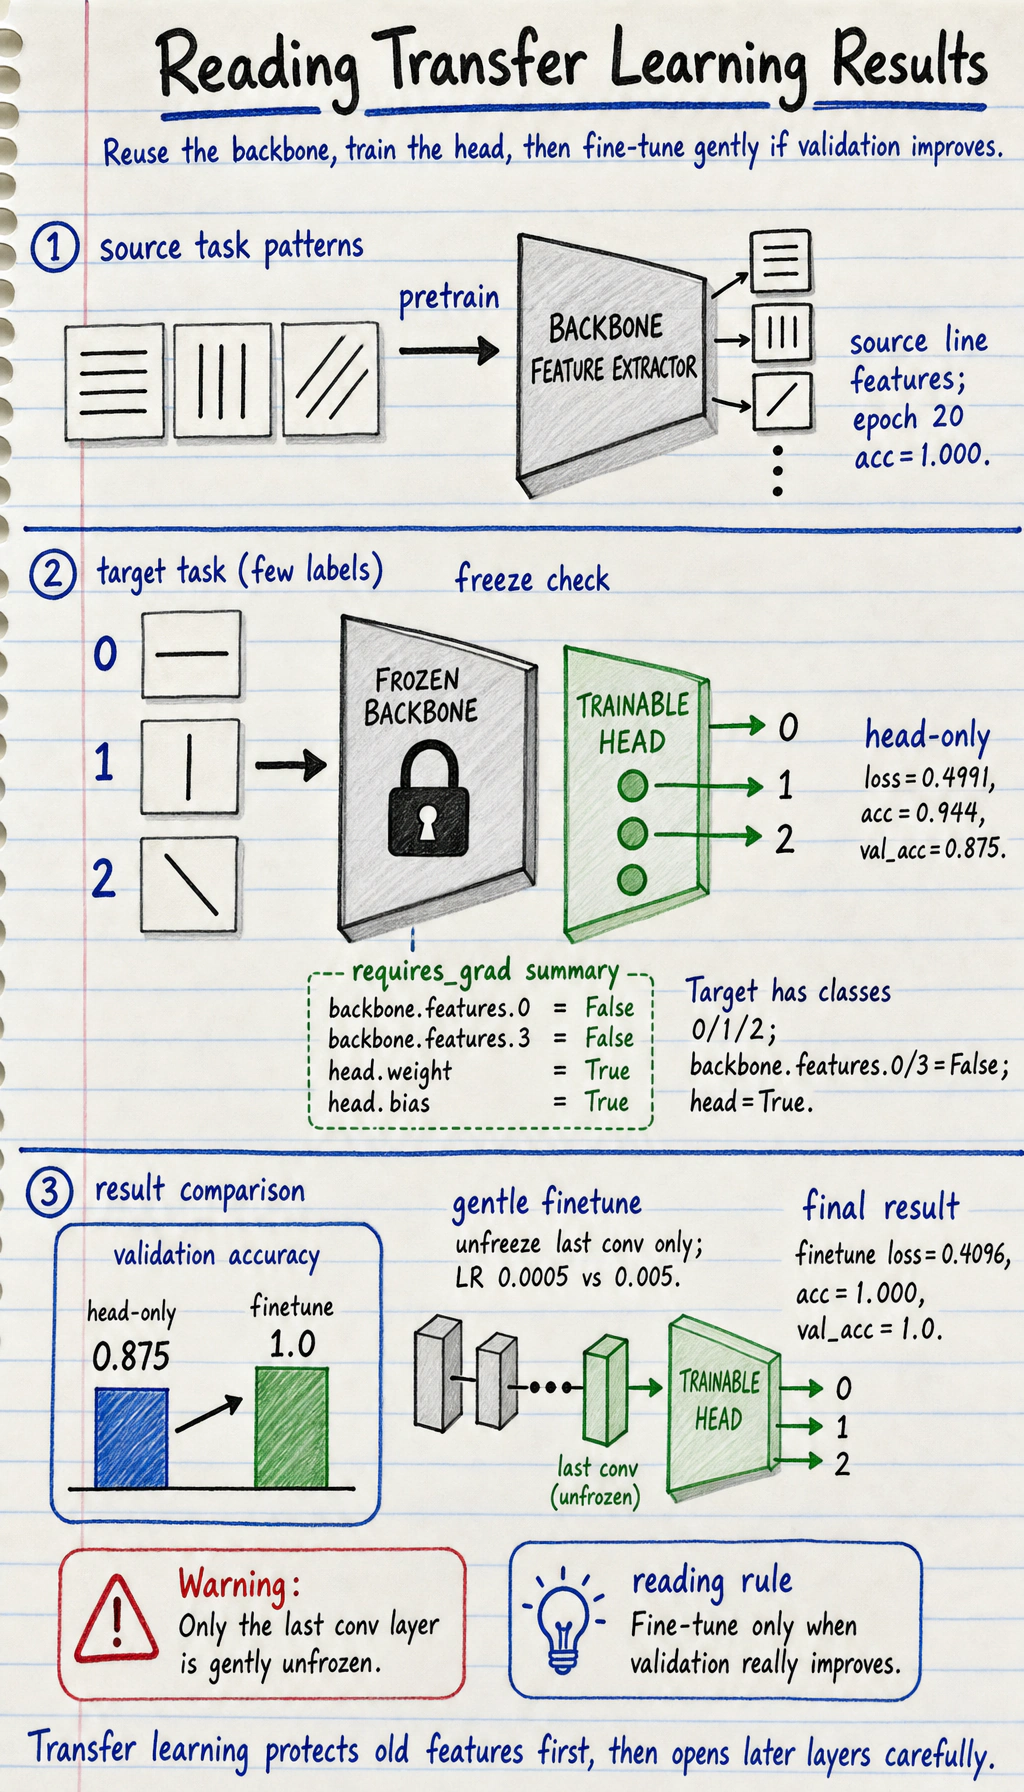 Reading Transfer Learning Results
Reuse the backbone, train the head, then fine-tune gently if validation improves.
1 source task patterns
pretrain
BACKBONE
FEATURE EXTRACTOR
source line
features;
epoch 20
acc = 1.000.
2 target task (few labels)
freeze check
0
1
2
FROZEN
BACKBONE
TRAINABLE
HEAD
0
1
2
head-only
loss = 0.4991,
acc = 0.944,
val_acc = 0.875.
requires_grad summary
backbone.features.0 = False
backbone.features.3 = False
head.weight = True
head.bias = True
Target has classes
0/1/2;
backbone.features.0/3 = False;
head = True.
3 result comparison
validation accuracy
head-only
0.875
finetune
1.0
gentle finetune
unfreeze last conv only;
LR 0.0005 vs 0.005.
last conv
(unfrozen)
TRAINABLE
HEAD
0
1
2
final result
finetune loss = 0.4096,
acc = 1.000,
val_acc = 1.0.
Warning:
Only the last conv layer
is gently unfrozen.
reading rule
Fine-tune only when
validation really improves.
Transfer learning protects old features first, then opens later layers carefully.